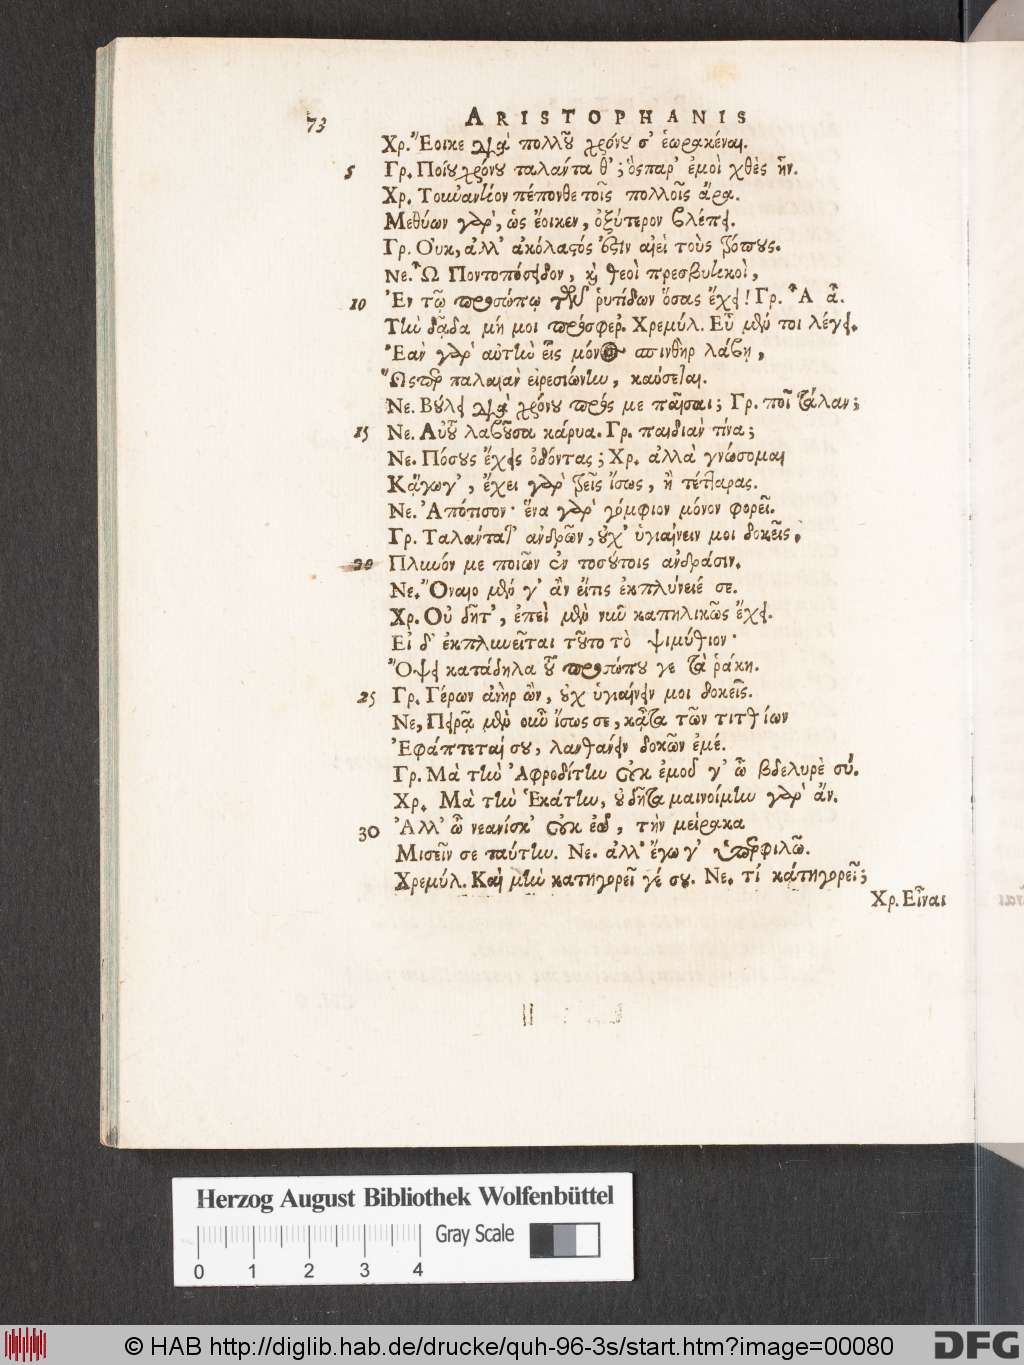 73 ARISTOPHANIS
Χρ. Ἔοικε διὰ πολλοῦ χρόνου σ' ἑωρακέναι.
5 Γρ. Ποίου χρόνου ταλάντα θ'; ὅς παρ' ἐμοὶ χθὲς ἦν.
Χρ. Τοὐναντίον πέπονθε τοῖς πολλοῖς ἄρα.
Μεθύων γὰρ, ὡς ἔοικεν, ὀξύτερον βλέπει.
Γρ. Οὐκ, ἀλλ' ἀκόλαστός ἐστιν αἰεὶ τοὺς τρόπους.
Νε. Ὦ Ποντοπόσειδον, καὶ θεοὶ πρεσβυτικοὶ,
10 Ἐν τῷ προσώπῳ τῶν ῥυτίδων ὅσας ἔχει! Γρ. Ἆ ἆ.
Τὴν δᾷδα μή μοι πρόσφερ. Χρεμύλ. Εὖ μέν τοι λέγει.
Ἐαν γὰρ αὐτὴν εἷς μόνος σπινθὴρ λάβῃ,
Ὥσπερ παλαιὰν εἰρεσιώνην, καύσεται.
Νε. Βούλει διὰ χρόνου πρός με παῖσαι; Γρ. ποῖ τάλαν;
15 Νε. Αὐοῦ λαβοῦσα κάρυα. Γρ. παιδιὰν τίνα;
Νε. Πόσους ἔχεις ὀδόντας; Χρ. ἀλλὰ γνώσομαι
Κἄγωγ', ἔχει γὰρ τρεῖς ἴσως, ἢ τέτταρας.
Νε. Ἀπότισον· ἕνα γὰρ γόμφιον μόνον φορεῖ.
Γρ. Ταλάντατ' ἀνδρῶν, οὐχ' ὑγιαίνειν μοι δοκεῖς.
20 Πλυνόν με ποιῶν ἐν τοσούτοις ἀνδράσιν.
Νε. Ὄναιο μέν γ' ἂν εἴτις ἐκπλύνειέ σε.
Χρ. Οὐ δῆτ', ἐπεὶ μὲν νῦν καπηλικῶς ἔχει.
Εἰ δ' ἐκπλυνεῖται τοῦτο τὸ ψιμύθιον·
Ὄψει κατάδηλα τοῦ προσώπου γε τὰ ῥάκη.
25 Γρ. Γέρων ἀνὴρ ὢν, οὐχ ὑγιαίνειν μοι δοκεῖς.
Νε, Πειρᾷ μὲν οὖν ἴσως σε, κᾆτα τῶν τιτθίων
Ἐφάπτεταί σου, λανθάνειν δοκῶν ἐμέ.
Γρ. Μὰ τὴν Ἀφροδίτην οὐκ ἐμοῦ γ' ὦ βδελυρὲ σύ.
Χρ. Μὰ τὴν Ἑκάτην, οὐ δῆτα μαινοίμην γὰρ ἄν.
30 Ἀλλ' ὦ νεανίσκ' οὐκ ἐῶ, τὴν μείρακα
Μισεῖν σε ταύτην. Νε. ἀλλ' ἔγωγ' ὑπερφιλῶ.
Χρεμύλ. Καὶ μὴν κατηγορεῖ γέ σου. Νε. τί κάτηγορεῖ;
Χρ. Εἶναι
Herzog August Bibliothek Wolfenbüttel
Gray Scale
0 1 2 3 4
© HAB http://diglib.hab.de/drucke/quh-96-3s/start.htm?image=00080
DFG